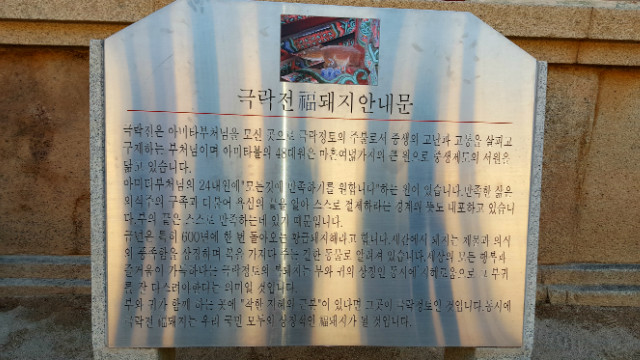 극락전福돼지안내문
극락전은 아미타부처님을 모신 곳으로 극락정토의 주불로서 중생의 고난과 고통을 살피고
구제하는 부처님이며 아미타불의 48대원은 마흔여덟가지의 큰 원으로 중생제도의 서원을
담고 있습니다.
아미타부처님의 24대원에"모든것에 만족하기를 원합니다"하는 원이 있습니다.만족한 삶은
의식주의 구족과 더불어 욕심의 끝을 알아 스스로 절제하라는 경계의 뜻도 내포하고 있습니
다.부의 끝은 스스로 만족하는데 있기 때문입니다.
금년은 특히 600년에 한 번 돌아오는 황금돼지해라고 합니다.세간에서 돼지는 제물과 의식
의 풍족함을 상징하며 복을 가져다 주는 길한 동물로 알려져 있습니다.세상의 모든 행복과
즐거움이 가득하다는 극락정토의 복돼지는 부와 귀의 상징인 동시에 지혜로움으로 그 부귀
를 잘 다스리라는 의미일 것입니다.
부와 귀가 함께 하는 곳에 "착한 지혜와 근로"이 있다면 그곳이 극락정토인 것입니다.동시에
극락전 福돼지는 우리 국민 모두의 상징적인 福돼지가 될 것입니다.